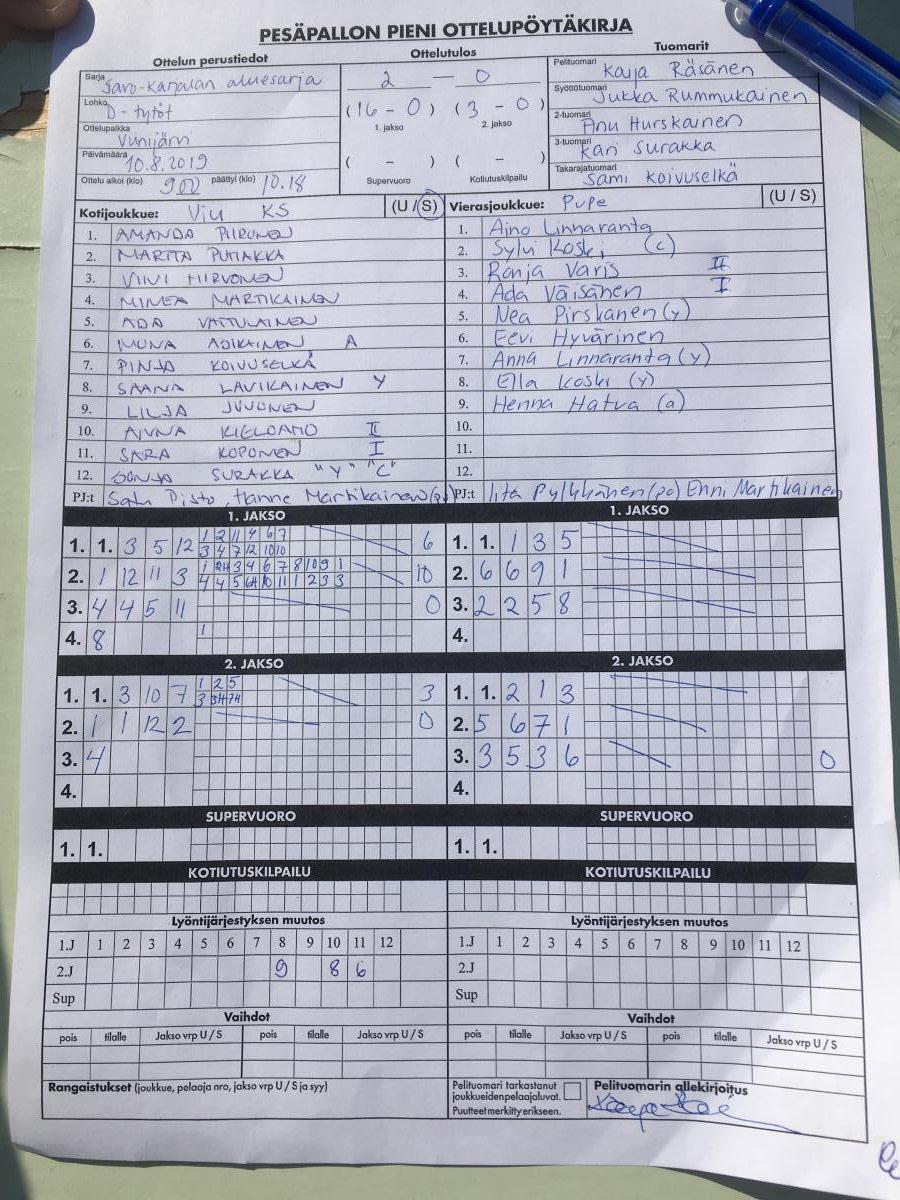 PESÄPALLON PIENI OTTELUPÖYTÄKIRJA
Ottelun perustiedot
Ottelutulos
Tuomarit
Sarja Savo-Karjalan aluesarja
Lohko D-tytöt
Ottelupaikka Vunijärvi
Päivämäärä 10.8.2019
Ottelu alkoi (klo) 900 päättyi (klo) 10.18
2 — 0
(16 - 0) (3 - 0)
1. jakso 2. jakso
( - ) ( - )
Supervuoro Kotiutuskilpailu
Pelituomari Kaija Räsänen
Syöttötuomari Jukka Rummukainen
2-tuomari Anu Hurskainen
3-tuomari Kari Surakka
Takarajatuomari Sami Koivuselkä
Kotijoukkue: Viu KS (U / S)
1. AMANDA PIIRONEN
2. MARITA PUTIAKKA
3. VIIVI HIRVONEN
4. MINEA MARTIKAINEN
5. ADA VATTULAINEN
6. MUNA ADIKAINEN A
7. PINJA KOIVUSELKÄ
8. SAANA LAVIKAINEN Y
9. LILJA JUVONEN
10. AINNA KIELOAHO II
11. SARA KOPONEN I
12. SONJA SURAKKA "Y" "C"
PJ:t Satu Pisto, Hanne Martikainen (pj)
Vierasjoukkue: Pupe (U / S)
1. Aino Linnaranta
2. Sylvi Koski (c)
3. Ronja Varis II
4. Ada Väisänen I
5. Nea Pirskanen (y)
6. Eevi Hyvärinen
7. Anna Linnaranta (y)
8. Ella Koski (y)
9. Henna Hatva (a)
10.
11.
12.
PJ:t Iita Pylkkänen (po) Enni Martikainen
1. JAKSO
1. 1. 3 5 12 1 2 11 4 6 7 6
3 4 7 12 10 10
2. 1 12 11 3 10
3. 4 4 5 11 0
4. 8 1
1. JAKSO
1. 1. 1 3 5
2. 6 6 9 1
3. 2 2 5 8
4.
2. JAKSO
1. 1. 3 10 7 1 2 5 3
3 3H 7H
2. 1 1 12 2 0
3. 4
4.
2. JAKSO
1. 1. 2 1 3
2. 5 6 7 1
3. 3 5 3 6 0
4.
SUPERVUORO
1. 1.
SUPERVUORO
1. 1.
KOTIUTUSKILPAILU
KOTIUTUSKILPAILU
Lyöntijärjestyksen muutos
1.J 1 2 3 4 5 6 7 8 9 10 11 12
2.J 9 8 6
Sup
Lyöntijärjestyksen muutos
1.J 1 2 3 4 5 6 7 8 9 10 11 12
2.J
Sup
Vaihdot
pois tilalle Jakso vrp U / S pois tilalle Jakso vrp U / S
Vaihdot
pois tilalle Jakso vrp U / S pois tilalle Jakso vrp U / S
Rangaistukset (joukkue, pelaaja nro, jakso vrp U / S ja syy)
Pelituomari tarkastanut
joukkueiden pelaajaluvat.
Puutteet merkitty erikseen.
Pelituomarin allekirjoitus